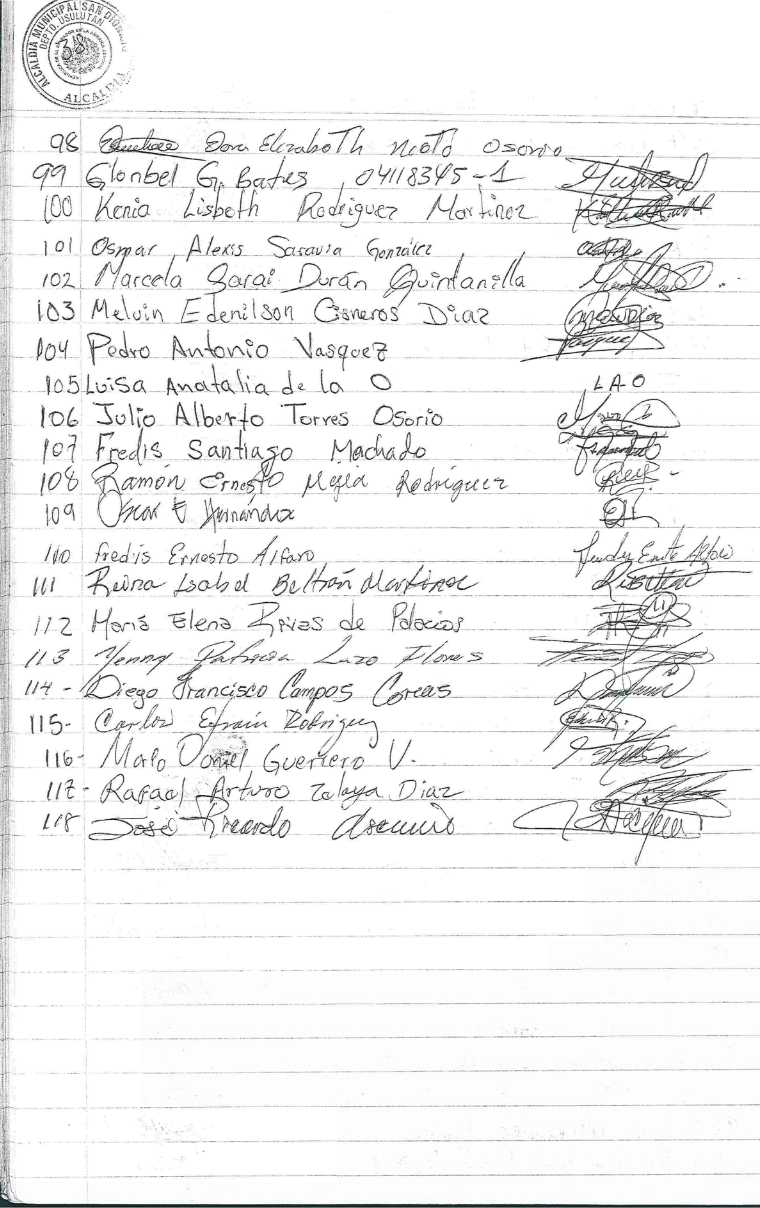 ALCALDIA MUNICIPAL SAN DIONISIO
DEPTO. USULUTAN
ALCALDIA
98 Dora Elizaboth nieto osorio
99 Glonbel G. Bates 04118345-1
100 Kenia Lisbeth Rodriguez Martinez
101 Osmar Alexis Saravia González
102 Marcela Sarai Durán Quintanilla
103 Melvin Edenilson Cisneros Diaz
104 Pedro Antonio Vasquez
105 Luisa Anatalia de la O L A O
106 Julio Alberto Torres Osorio
107 Fredis Santiago Machado
108 Ramón Ernesto Mejía Rodríguez
109 Oscar E Hernández
110 fredis Ernesto Alfaro
111 Reina Isabel Beltrán Martinez
112 María Elena Rivas de Palacios
113 Yenny Patricia Lazo Flores
114 - Diego Francisco Campos Coreas
115- Carlos Efraín Rodríguez
116- Daniel Guerrero V.
117- Rafael Arturo Zelaya Diaz
118 José Ricardo